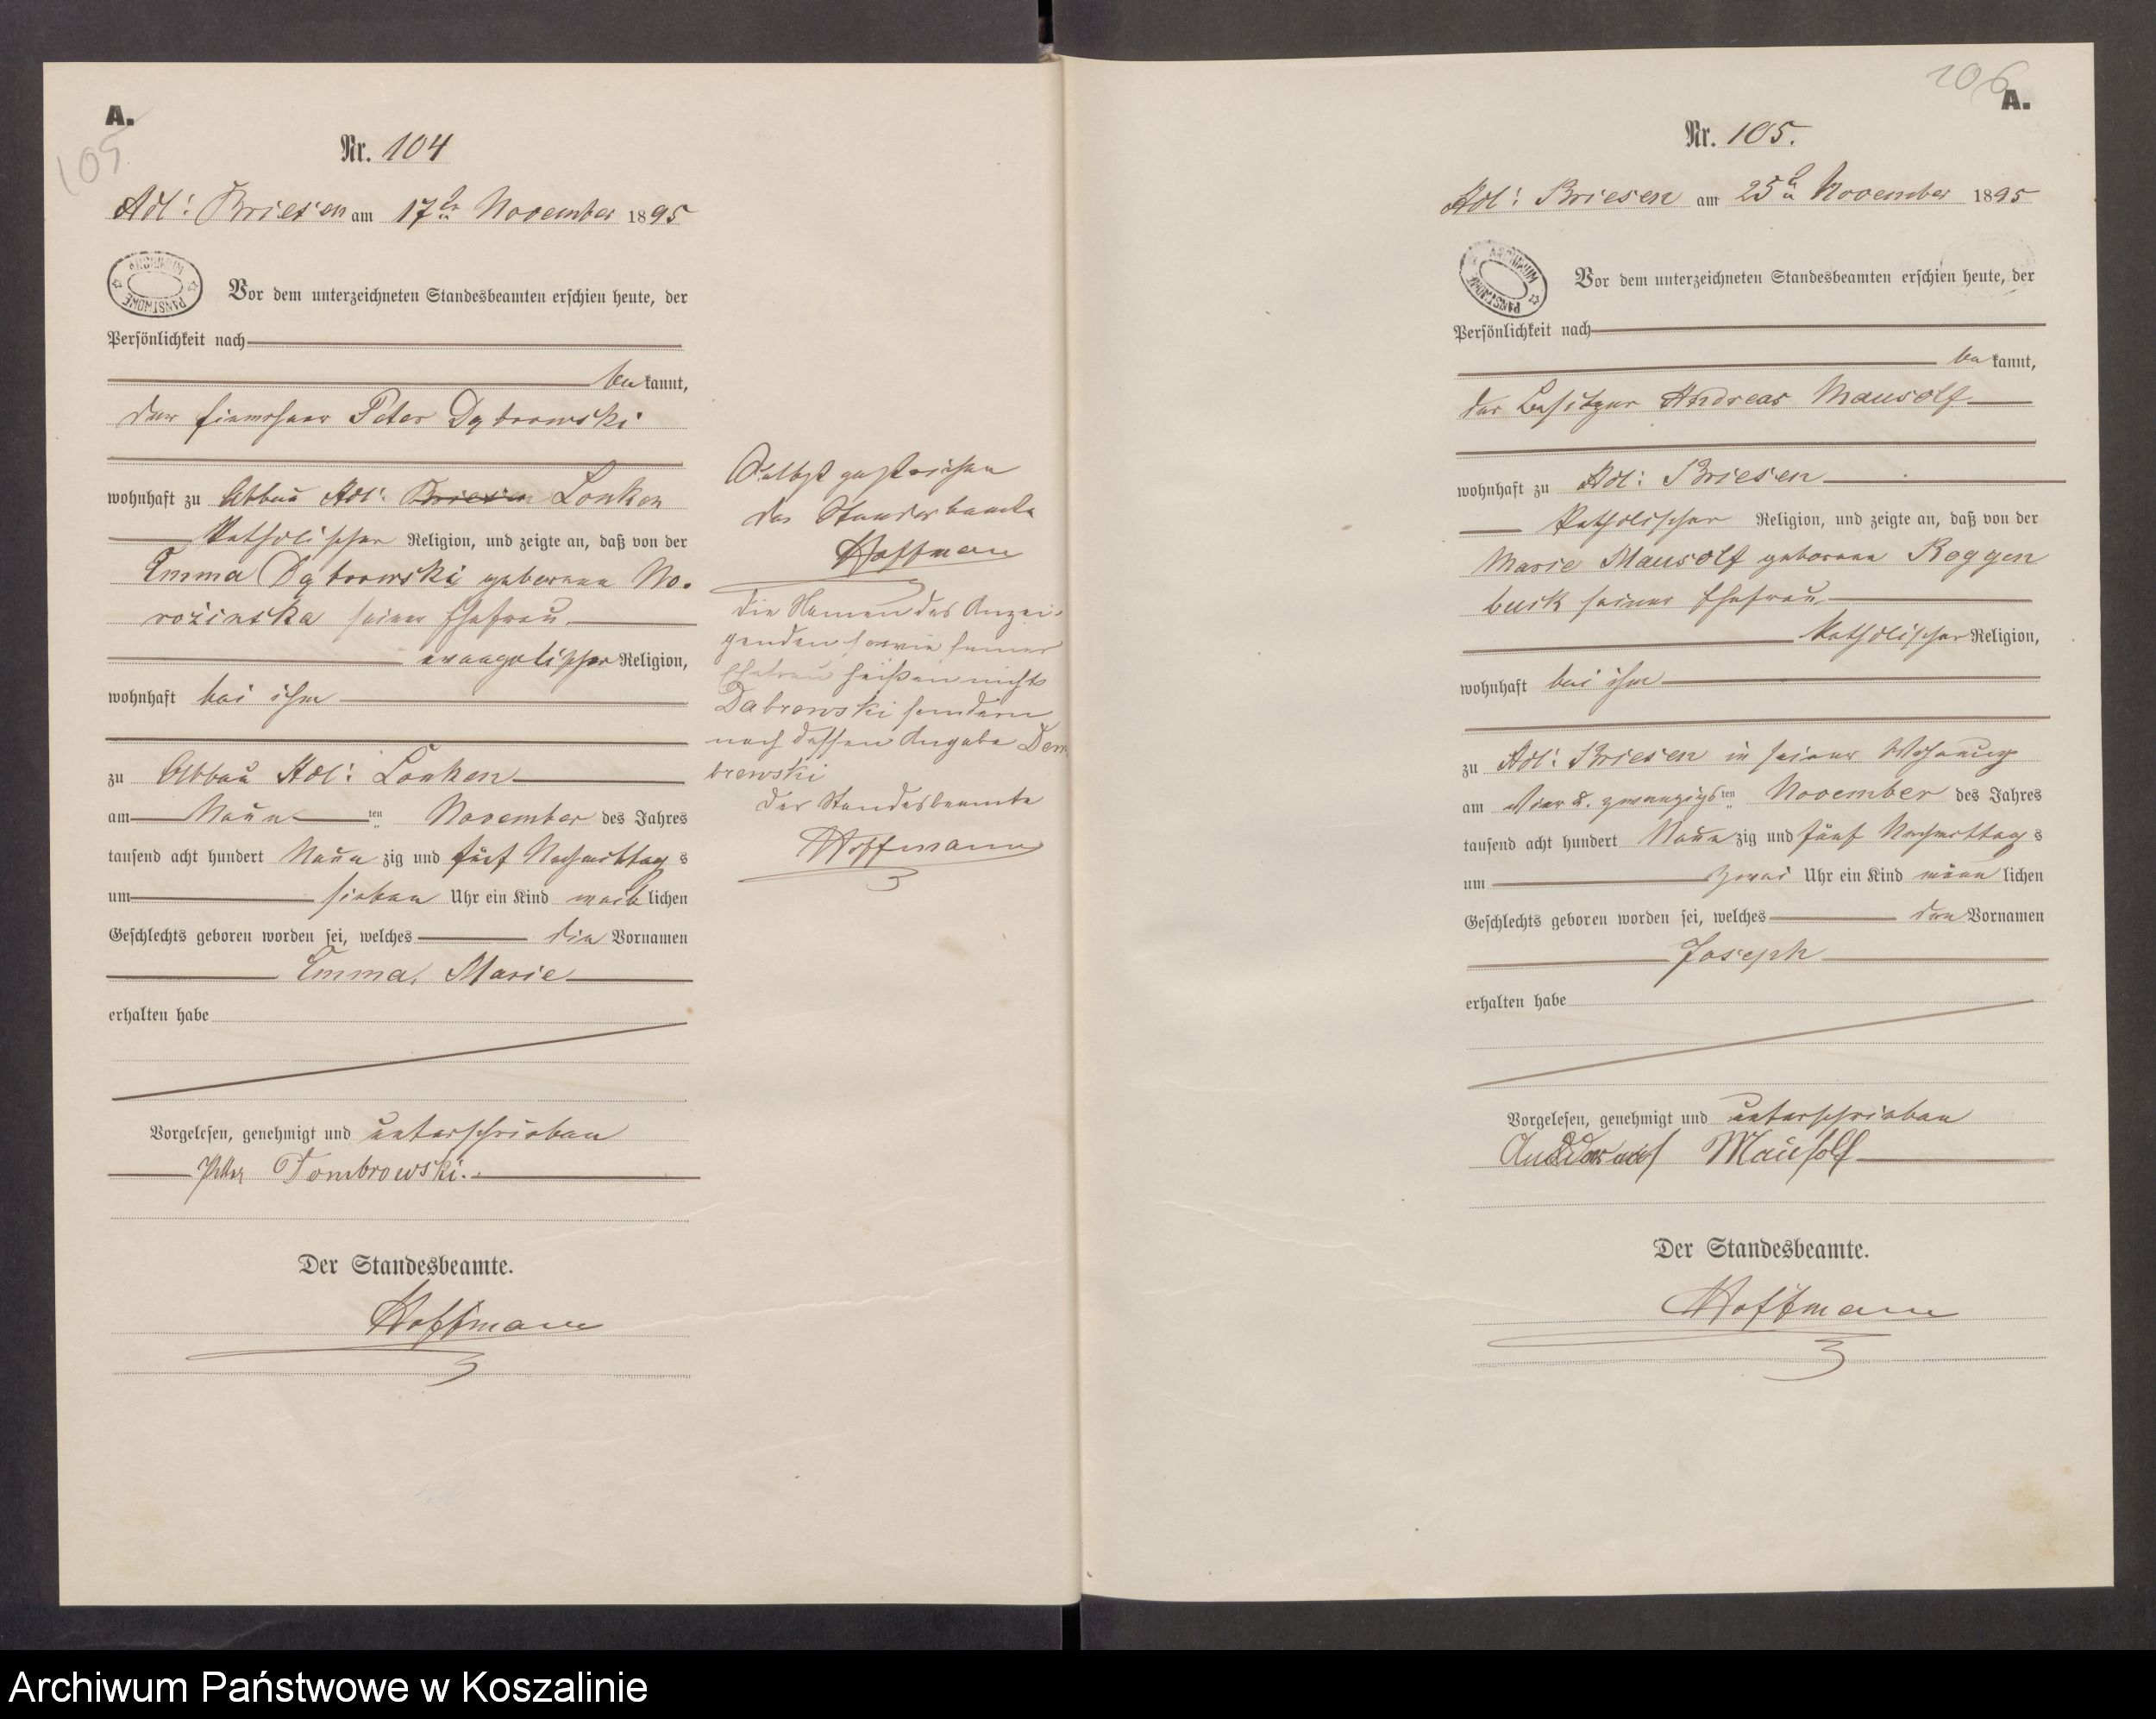 A.
105
Nr. 104
Adl: Briesen am 17ten November 1895
ARCHIWUM PAŃSTWOWE
Vor dem unterzeichneten Standesbeamten erschien heute, der
Persönlichkeit nach
bekannt,
der Einwohner Peter Dąbrowski
wohnhaft zu Abbau Adl: Briesen Lonken
katholischer Religion, und zeigte an, daß von der
Emma Dąbrowski geborene No-
rožinska seiner Ehefrau
evangelischer Religion,
wohnhaft bei ihm
zu Abbau Adl: Lonken
am Neun ten November des Jahres
tausend acht hundert Neun zig und fünf Nachmittags
um sieben Uhr ein Kind weiblichen
Geschlechts geboren worden sei, welches die Vornamen
Emma, Marie
erhalten habe
Vorgelesen, genehmigt und unterschrieben
Peter Dombrowski.
Der Standesbeamte.
Hoffmann
Selbst gestrichen
der Standesbeamte
Hoffmann
Die Namen des Anzei-
genden sowie seiner
Ehefrau heißen nicht
Dabrowski sondern
nach dessen Angabe Dem
browski
Der Standesbeamte
Hoffmann
106
A.
Nr. 105.
Adl: Briesen am 25ten November 1895
ARCHIWUM PAŃSTWOWE
Vor dem unterzeichneten Standesbeamten erschien heute, der
Persönlichkeit nach
bekannt,
der Besitzer Andreas Mausolf
wohnhaft zu Adl: Briesen
katholischer Religion, und zeigte an, daß von der
Marie Mausolf geborene Roggen
buck seiner Ehefrau
katholischer Religion,
wohnhaft bei ihm
zu Adl: Briesen in seiner Wohnung
am Vier u. zwanzigsten November des Jahres
tausend acht hundert Neun zig und fünf Nachmittags
um zwei Uhr ein Kind männlichen
Geschlechts geboren worden sei, welches den Vornamen
Joseph
erhalten habe
Vorgelesen, genehmigt und unterschrieben
Mausolf
Der Standesbeamte.
Hoffmann
Archiwum Państwowe w Koszalinie